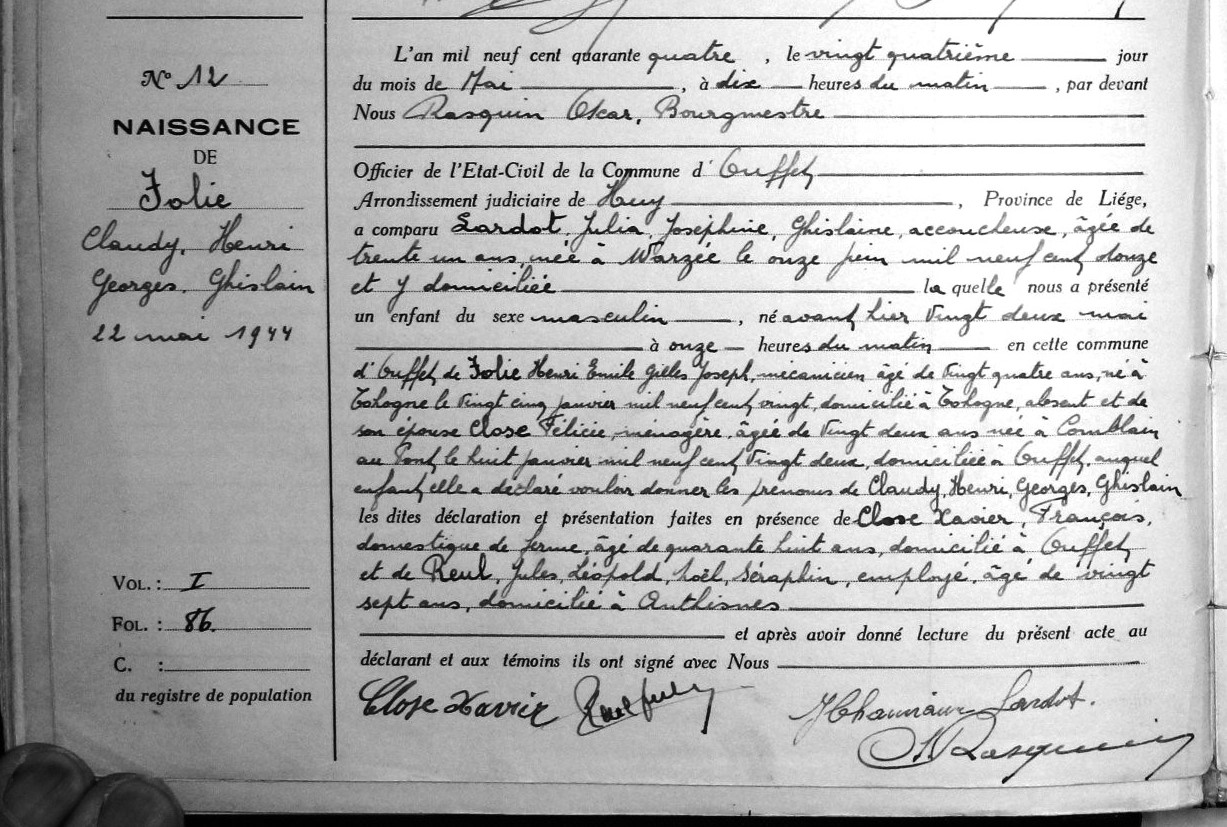 N° 12
NAISSANCE
DE
Jolie
Claudy, Henri
Georges, Ghislain
22 mai 1944
VOL. : I
FOL. : 86.
C. :
du registre de population
L'an mil neuf cent quarante quatre, le vingt quatrième jour
du mois de Mai, à dix heures du matin, par devant
Nous Rasquin Oscar, Bourgmestre
Officier de l'Etat-Civil de la Commune d' Ouffet
Arrondissement judiciaire de Huy, Province de Liége,
a comparu Lardot, Julia, Joséphine, Ghislaine, accoucheuse, âgée de
trente un ans, née à Warzée le onze juin mil neuf cent douze
et y domiciliée laquelle nous a présenté
un enfant du sexe masculin, né avant hier vingt deux mai
à onze heures du matin en cette commune
d'Ouffet, de Jolie Henri Emile Gilles Joseph, mécanicien âgé de vingt quatre ans, né à
Tohogne le vingt cinq janvier mil neuf cent vingt, domicilié à Tohogne, absent et de
son épouse Close Félicie, ménagère, âgée de vingt deux ans née à Comblain
au Pont, le huit janvier mil neuf cent vingt deux, domiciliée à Ouffet, auquel
enfant elle a déclaré vouloir donner les prénoms de Claudy, Henri, Georges, Ghislain
les dites déclaration et présentation faites en présence de Close Xavier, François,
domestique de ferme, âgé de quarante huit ans, domicilié à Ouffet,
et de Reul, Jules, Léopold, Noël, Séraphin, employé, âgé de vingt
sept ans, domicilié à Anthisnes
et après avoir donné lecture du présent acte au
déclarant et aux témoins ils ont signé avec Nous
Close Xavier Reul Lardot.
Rasquin